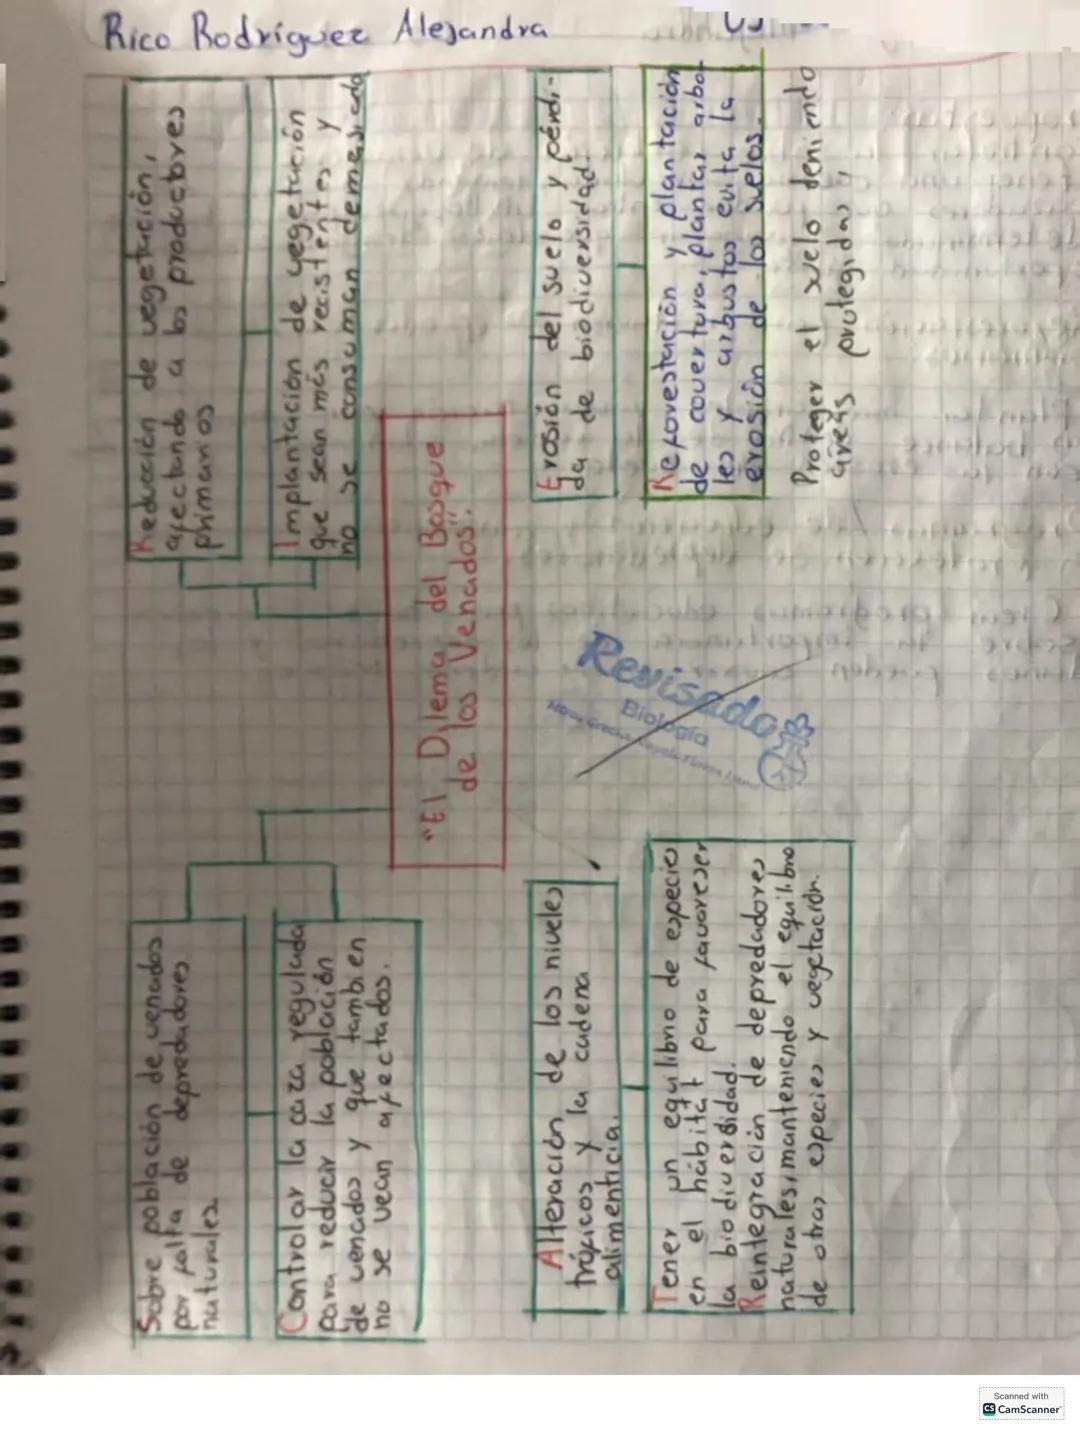 Rico Rodríguez Alejandra
Sobre población de venados
por falta de depredadores
naturales
Controlar la caza regulada
para reducir la población
de venados y que tambien
no se vean afectados.
Reducción de vegetación,
afectando a los productores
primarios
Implantación de vegetación
que sean más recistentes y
no se consuman demasiado
"El Dilema del Bosque
de los Venados".
Alteración de los niveles
tróficos y la cadena
alimenticia.
Tener un equlibrio de especies
en el hábitat para favoreser
la biodiverdidad.
Reintegración de depredadores
naturales, manteniendo el equilibrio
de otras especies y vegetación.
Erosión del suelo y pérdi-
da de biodiversidad.
Reforestación y plantación
de covertura, plantas arbo-
les y arbustos evita la
erosión de los suelos.
Proteger el suelo deniendo
áreas protegidas,
Revisado
Biología
Scanned with
CS CamScanner